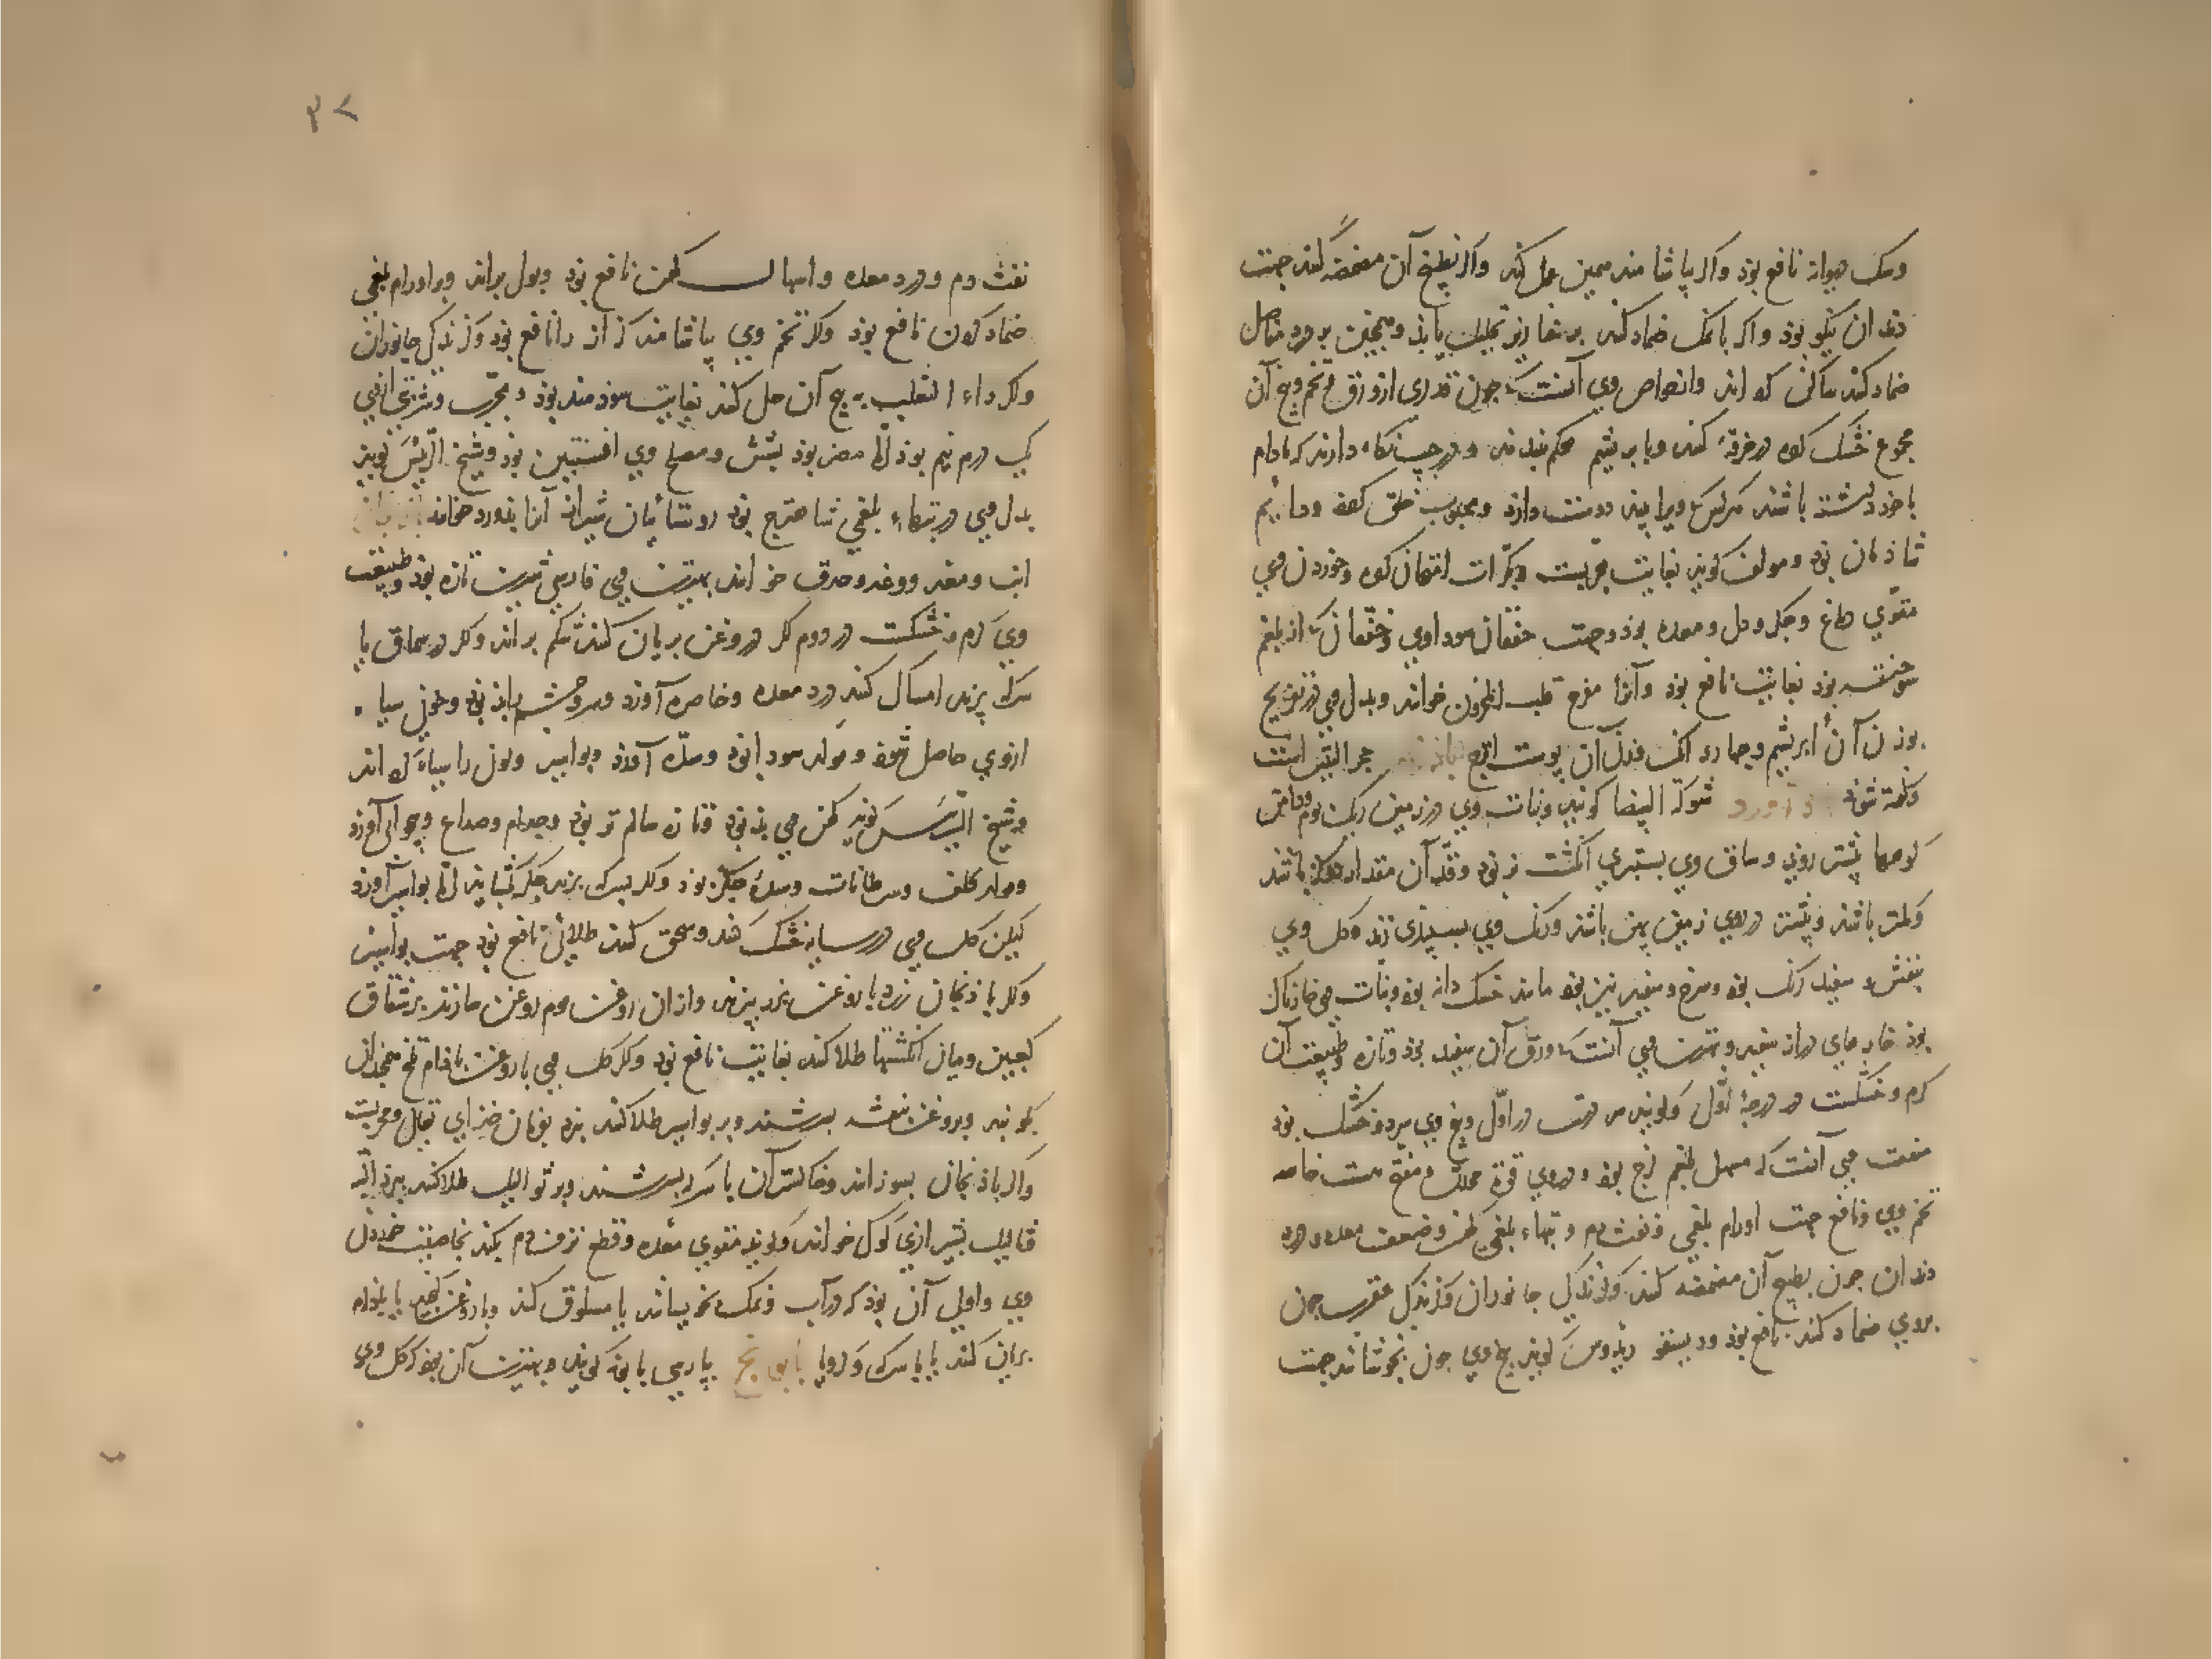 وسک دیوانه نافع بود و اگر بیاشامند همین عمل کند و اگر بطبیخ آن مضمضه کنند جهت
دندان نیکو بود و اگر با نمک ضماد کنند بر خنازیر تحلیل یابد و همچنین بر درد مفاصل
ضماد کنند ساکن گرداند و از خواص وی آنست که چون قدری از ورق و تخم و بیخ آن
مجموع خشک کرده در خرقه کنند و با بریشم محکم ببندند و در جیب نگاه دارند که مادام
با خود داشته باشند هر کس که ویرا بیند دوست دارد و محبوب خلق گردد و دایم
شادمان بود و مولف گوید بغایت مجربست و بکرات امتحان کرده و خوردن وی
مقوی دماغ و جگر و دل و معده بود و جهت خفقان سوداوی و خفقان که از بلغم
سوخته بود بغایت نافع بود و آنرا مفرح قلب المحزون خوانند و بدل وی در تفریح
بوزن آن ابریشم و چهار دانگ وزن آن پوست اترج حجر التیس است
و گفته شود شوکة البیضا گویند و نبات وی در زمین ریگ بوم و دامن
کوهها بیشتر روید و ساق وی بستبری انگشت نر بود و قد آن مقدار دو گز باشد
و کمتر باشد و بیشتر در روی زمین پهن باشد و رنگ وی بسپیدی زند و گل وی
بنفش و سفید رنگ بود و سرخ و سفید نیز بود مانند خسک دانه بود و نبات وی خارناک
بود خارهای دراز سفید و بهترین وی آنست که ورق آن سفید بود و تازه و طبیعت آن
گرم و خشکست در درجه اول و گویند سردست در اول و بیخ وی سرد و خشک بود
منفعت وی آنست که مسهل بلغم لزج بود و در وی قوت محلله و مفتحه هست خاصه
تخم وی و نافع جهت اورام بلغمی و نفث دم و تبهاء بلغمی کهن و ضعف معده و درد
دندان چون بطبیخ آن مضمضه کنند و گزندگی جانوران و گزندگی عقرب چون
بروی ضماد کنند نافع بود و دیسقوریدوس گوید بیخ وی چون بجوشانند جهت
۳۲
نفث دم و درد معده و اسهال کهن نافع بود و بول براند و بر اورام بلغمی
ضماد کردن نافع بود و اگر تخم وی بیاشامند کزاز را نافع بود و گزندگی جانوران
و اگر داء الثعلب به بیخ آن حل کنند بغایت سودمند بود و مجرب و شربتی از وی
یک درم نیم بود اما مضر بود بشش و مصلح وی افسنتین بود و شیخ الرئیس گوید
بدل وی در تبهاء بلغمی شاهترج بود روستائیان شیراز آنرا بادورد خوانند
انب و مغد و وغد و حدق خوانند بهترین وی فارسی شیرین تازه بود و طبیعت
وی گرم و خشکست در دوم اگر در روغن بریان کنند شکم براند و اگر در سماق یا
سرکه پزند امساک کند درد معده و خاصره آورد و سر و چشم را بد بود و خون سیاه
از وی حاصل شود و مولد سودا بود و سده آورد و بواسیر و لون را سیاه گرداند
و شیخ الرئیس گوید کهن وی بد بود و تازه سالم تر بود و جذام و صداع و بیخوابی آورد
و مولد کلف و سرطانات و سده جگر بود و اگر بسرکه پزند جگر بگشاید اما بواسیر آورد
لیکن گل وی در سایه خشک کنند و سحق کنند طلای نافع بود جهت بواسیر
و اگر باذنجان زرد با روغن بزر پزند و از آن روغن موم روغن سازند بر شقاق
کعبین و میان انگشتها طلا کنند بغایت نافع بود و اگر گل وی با روغن بادام تلخ همچندان
بکوبند و بروغن بنفشه بسرشند و بر بواسیر طلا کنند ببرد بفرمان خدای تعالی و مجربست
و اگر باذنجان بسوزانند و خاکستر آن با سرکه بسرشند و بر ثوالیل طلا کنند ببرد البته
ثالیل بشیرازی گوک خوانند و گویند مقوی معده و قطع نزف دم بکند بخاصیت خوردن
وی و اولی آن بود که در آب و نمک بخویسانند یا مسلوق کنند و با روغن کنجد یا بادام
بریان کنند یا با سرکه و کرویا بابونج بپارسی بابونه گویند و بهترین آن بود که گل وی